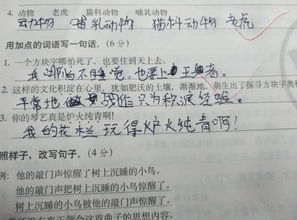 4. 动物 老虎 猫科动物 哺乳动物
动物 哺乳动物 猫科动物 老虎
用加点的词语写一句话。(6分)
1. 一个方块字哪怕死了,也要住到天上去。
我哪怕不睡觉,也要上王者。
2. 这样的文化积淀在心里,犹如肥沃的土壤,渐渐地,萌生出了探寻方块字奥秘
平常地 只为积淀经验。
3. 你的琴艺真是炉火纯青啊!
我的 玩得炉火纯青啊!
照样子,改写句子。(4分)
例:他的敲门声惊醒了树上沉睡的小鸟。
他的敲门声把树上沉睡的小鸟惊醒了。
树上沉睡的小鸟被他的敲门声惊醒了。
这首曲子的思想内容。